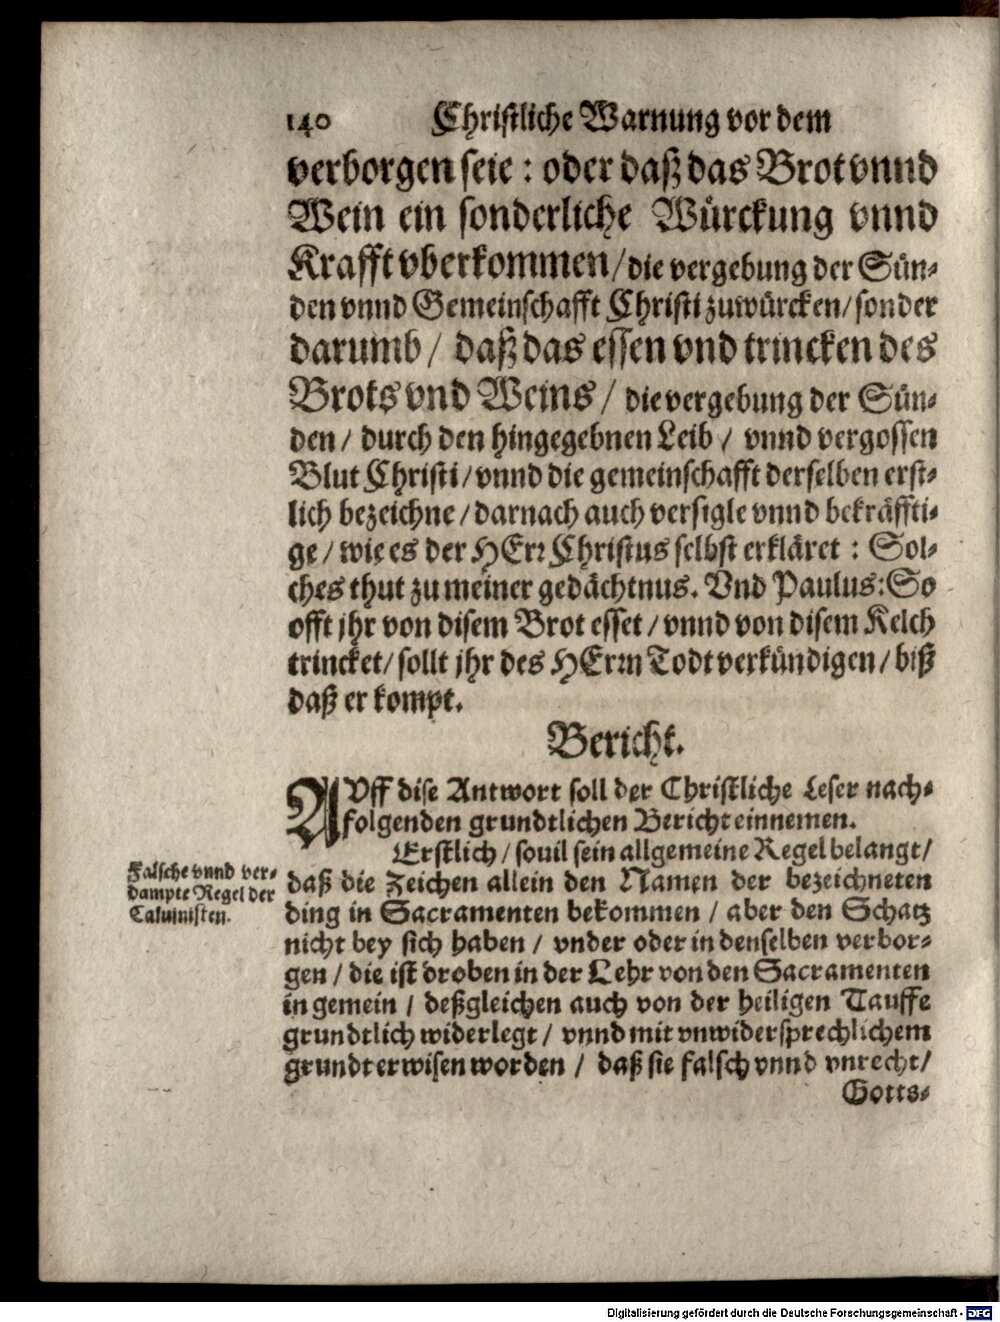 140 Christliche Warnung vor dem
verborgen seie : oder daß das Brot vnnd
Wein ein sonderliche Würckung vnnd
Krafft vberkommen / die vergebung der Sün-
den vnnd Gemeinschafft Christi zuwürcken / sonder
darumb / daß das essen vnd trincken des
Brots vnd Weins / die vergebung der Sün-
den / durch den hingegebnen Leib / vnnd vergossen
Blut Christi / vnnd die gemeinschafft derselben erst-
lich bezeichne / darnach auch versigle vnnd bekräffti-
ge / wie es der HErr Christus selbst erkläret : Sol-
ches thut zu meiner gedächtnus. Vnd Paulus: So
offt jhr von disem Brot esset / vnnd von disem Kelch
trincket / sollt jhr des HErrn Todt verkündigen / biß
daß er kompt.
Bericht.
AVff dise Antwort soll der Christliche Leser nach-
folgenden grundtlichen Bericht einnemen.
Erstlich / souil sein allgemeine Regel belangt /
Falsche vnnd ver-
dampte Regel der
Caluinisten.
daß die Zeichen allein den Namen der bezeichneten
ding in Sacramenten bekommen / aber den Schatz
nicht bey sich haben / vnder oder in denselben verbor-
gen / die ist droben in der Lehr von den Sacramenten
in gemein / deßgleichen auch von der heiligen Tauffe
grundtlich widerlegt / vnnd mit vnwidersprechlichem
grundt erwisen worden / daß sie falsch vnnd vnrecht /
Gotts-
Digitalisierung gefördert durch die Deutsche Forschungsgemeinschaft - DFG